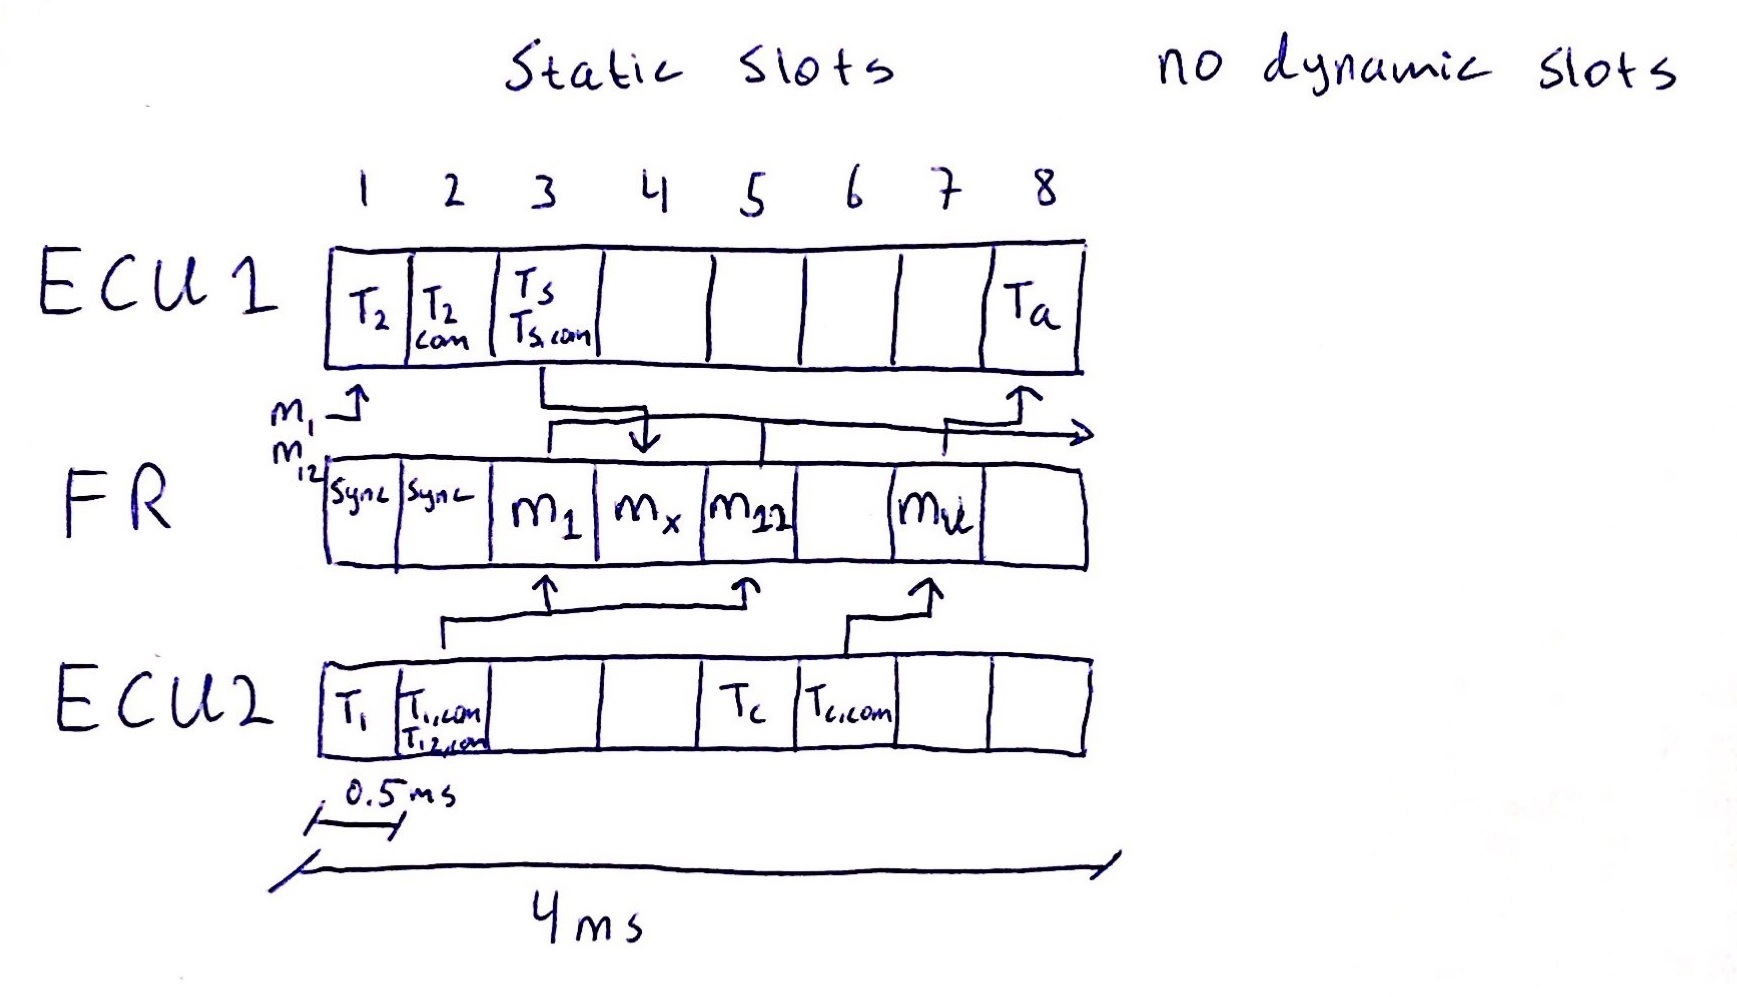 Static slots no dynamic slots
1 2 3 4 5 6 7 8
ECU1
T2
T2 com
Ts Ts,com
Ta
m1
m12
FR
Sync
Sync
m1
mx
m12
mu
ECU2
T1
T1,com T12,com
Tc
Tc,com
0.5ms
4ms